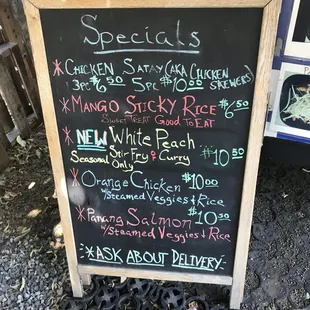 Specials
*Chicken Satay (AKA Chicken Skewers)
3pc $6.50 5pc $10.00
*Mango Sticky Rice $6.50
Sweet Treat Good to Eat
*NEW White Peach
Seasonal Only Stir-Fry & Curry $10.50
*Orange Chicken $10.00
w/Steamed Veggies & Rice
*Panang Salmon $10.50
w/Steamed Veggies & Rice
*ASK ABOUT DELIVERY